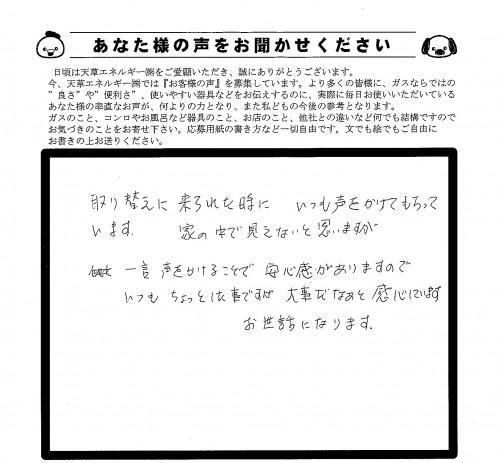 あなた様の声をお聞かせください
日頃は天草エネルギー㈱をご愛顧いただき、誠にありがとうございます。
今、天草エネルギー㈱では『お客様の声』を募集しています。より多くの皆様に、ガスならではの
”良さ”や”便利さ”、使いやすい器具などをお伝えするのに、実際に毎日お使いいただいている
あなた様の率直なお声が、何よりの力となり、また私どもの今後の参考となります。
ガスのこと、コンロやお風呂など器具のこと、お店のこと、他社との違いなど何でも結構ですので
お気づきのことをお寄せ下さい。応募用紙の書き方など一切自由です。文でも絵でもご自由に
お書きの上お送りください。
取り替えに来られた時に いつも声をかけてもらって
います。 家の中で見えないと思いますが
一言 声をかけることで 安心感がありますので
いつも ちょっとした事ですが 大事だなあと 感心しています
お世話になります。